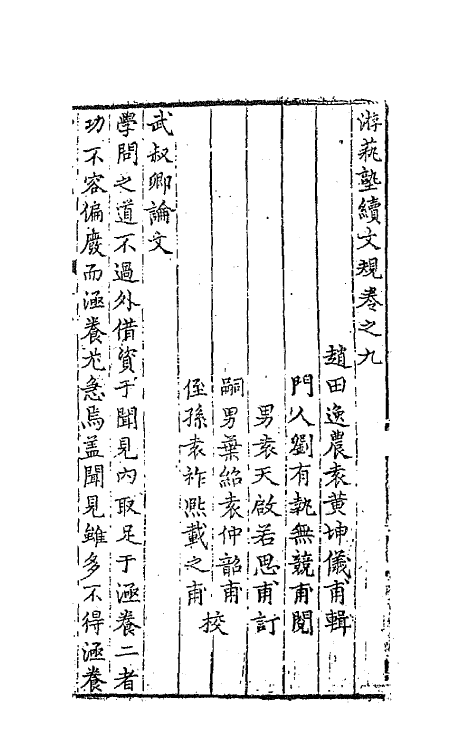 游蓺塾續文規卷之九
趙田逸農袁黃坤儀甫輯
門人劉有執無競甫閱
男袁天啟若思甫訂
嗣男葉紹袁仲韶甫
侄孫袁祚熙載之甫
校
武叔卿論文
學問之道不過外借資于聞見內取足于涵養二者
功不容偏廢而涵養尤急焉盖聞見雖多不得涵養